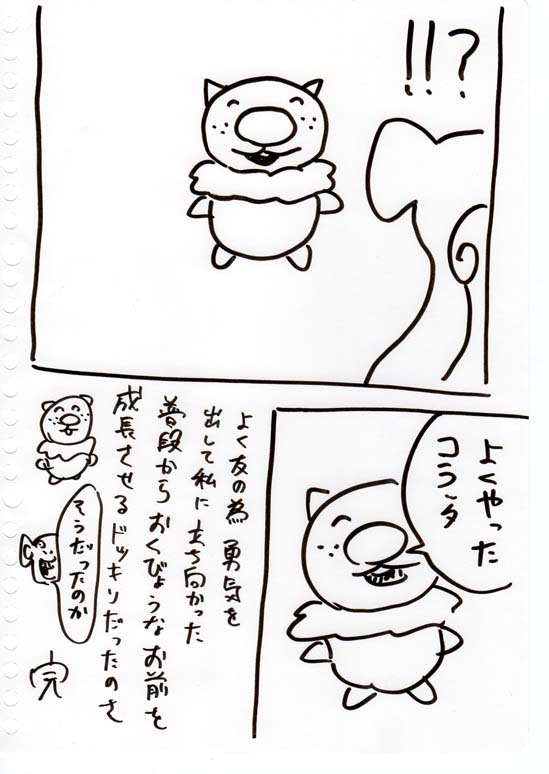 !!?
よくやった
コラッタ
よく友の為 勇気を
出して私に立ち向かった
普段からおくびょうなお前を
成長させるドッキリだったのさ
そうだったのか
完